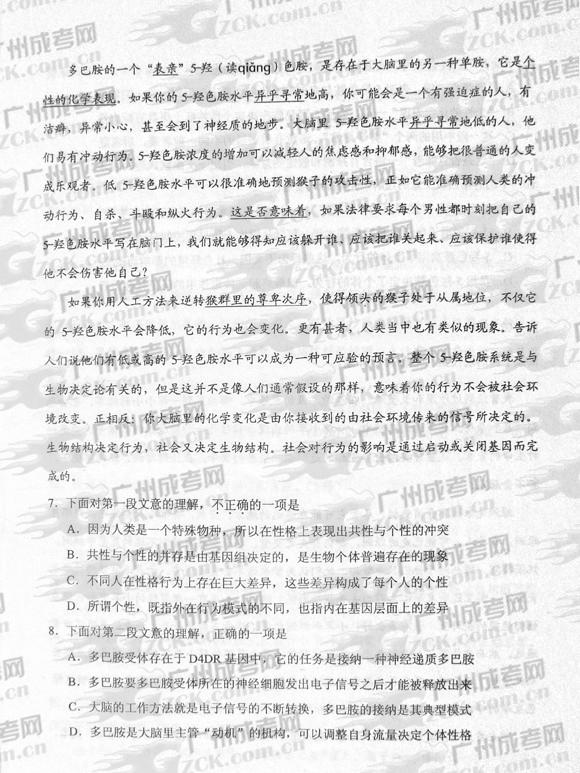 多巴胺的一个“表亲”5-羟（读qiǎng）色胺，是存在于大脑里的另一种单胺，它是个
性的化学表现。如果你的5-羟色胺水平异乎寻常地高，你可能会是一个有强迫症的人，有
洁癖，异常小心，甚至会到了神经质的地步。大脑里 5-羟色胺水平异乎寻常地低的人，他
们易有冲动行为。5-羟色胺浓度的增加可以减轻人的焦虑感和抑郁感，能够把很普通的人变
成乐观者。低 5-羟色胺水平可以很准确地预测猴子的攻击性，正如它能准确预测人类的冲
动行为、自杀、斗殴和纵火行为。这是否意味着，如果法律要求每个男性都时刻把自己的
5-羟色胺水平写在脑门上，我们就能够得知应该躲开谁、应该把谁关起来、应该保护谁使得
他不会伤害他自己？
如果你用人工方法来逆转猴群里的尊卑次序，使得领头的猴子处于从属地位，不仅它
的 5-羟色胺水平会降低，它的行为也会变化。更有甚者，人类当中也有类似的现象。告诉
人们说他们有低或高的 5-羟色胺水平可以成为一种可应验的预言。整个 5-羟色胺系统是与
生物决定论有关的，但是这并不是像人们通常假设的那样，意味着你的行为不会被社会环
境改变。正相反：你大脑里的化学变化是由你接收到的由社会环境传来的信号所决定的。
生物结构决定行为，社会又决定生物结构。社会对行为的影响是通过启动或关闭基因而完
成的。
7．下面对第一段文意的理解，不正确的一项是
A．因为人类是一个特殊物种，所以在性格上表现出共性与个性的冲突
B．共性与个性的并存是由基因组决定的，是生物个体普遍存在的现象
C．不同人在性格行为上存在巨大差异，这些差异构成了每个人的个性
D．所谓个性，既指外在行为模式的不同，也指内在基因层面上的差异
8．下面对第二段文意的理解，正确的一项是
A．多巴胺受体存在于 D4DR 基因中，它的任务是接纳一种神经递质多巴胺
B．多巴胺要多巴胺受体所在的神经细胞发出电子信号之后才能被释放出来
C．大脑的工作方法就是电子信号的不断转换，多巴胺的接纳是其典型模式
D．多巴胺是大脑里主管“动机”的机构，可以调整自身流量决定个体性格
广州成考网
GZCK.com.cn